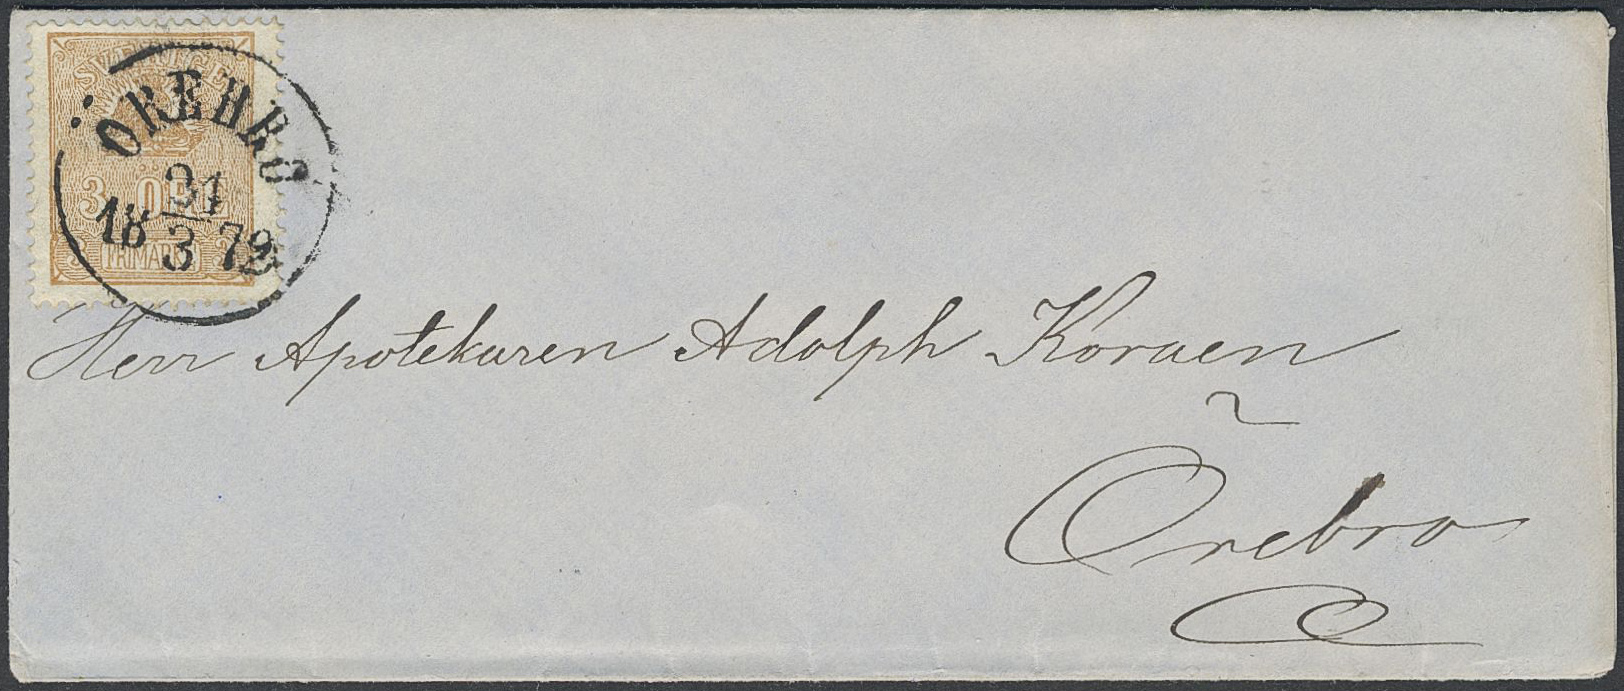 SVERIGE
ÖREBRO
3 ÖRE
31
18 3 72
FRIMÄRKE
Herr Apotekaren Adolph Koraen
Örebro